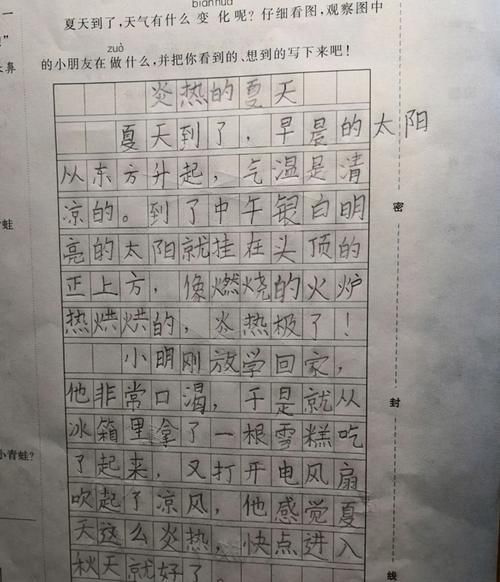 biànhuà
夏天到了,天气有什么变化呢?仔细看图,观察图中
zuò
的小朋友在做什么,并把你看到的、想到的写下来吧!
炎热的夏天
夏天到了,早晨的太阳
从东方升起,气温是清
凉的。到了中午银白明
亮的太阳就挂在头顶的
正上方,像燃烧的火炉
热烘烘的,炎热极了!
小明刚放学回家,
他非常口渴,于是就从
冰箱里拿了一根雪糕吃
了起来,又打开电风扇
吹起了凉风,他感觉夏
天这么炎热,快点进入
秋天就好了。
密
封
线
一
”
鼻
蛙
小青蛙?